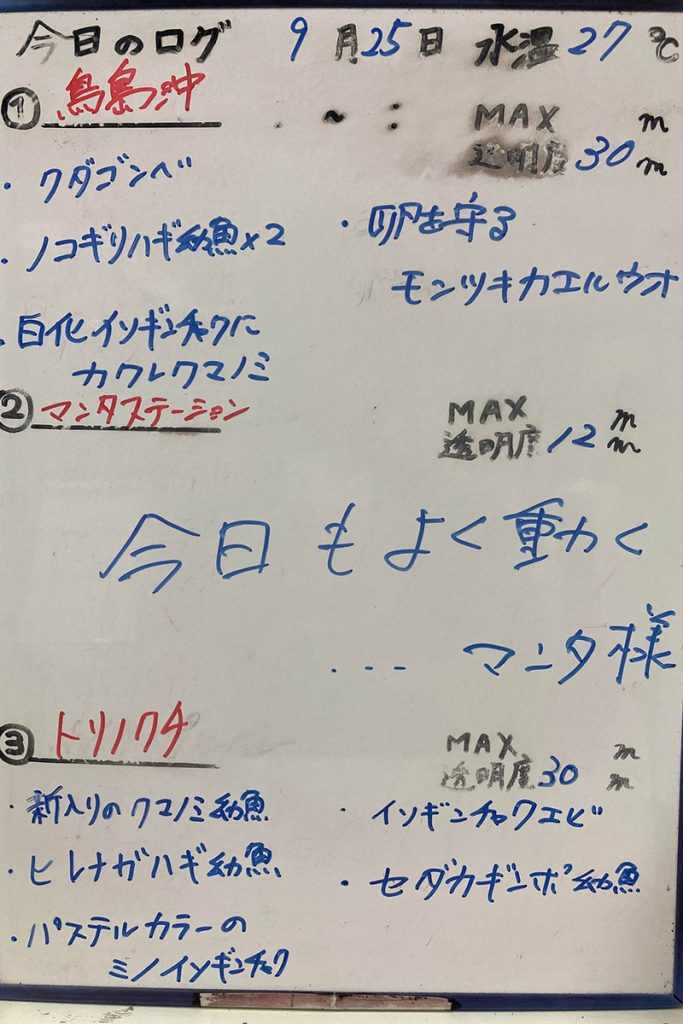 今日のログ 9月25日 水温27℃
① 鳥島沖
~ :
MAX m
透明度30m
・クダゴンベ
・ノコギリハギ幼魚×2
・白化イソギンチャクに
カクレクマノミ
・卵を守る
モンツキカエルウオ
② マンタステーション
MAX m
透明度12m
今日もよく動く
... マンタ様
③ トリノクチ
MAX m
透明度30m
・新入りのクマノミ幼魚
・ヒレナガハギ幼魚
・パステルカラーの
ミノイソギンチャク
・イソギンチャクエビ
・セダカギンポ幼魚